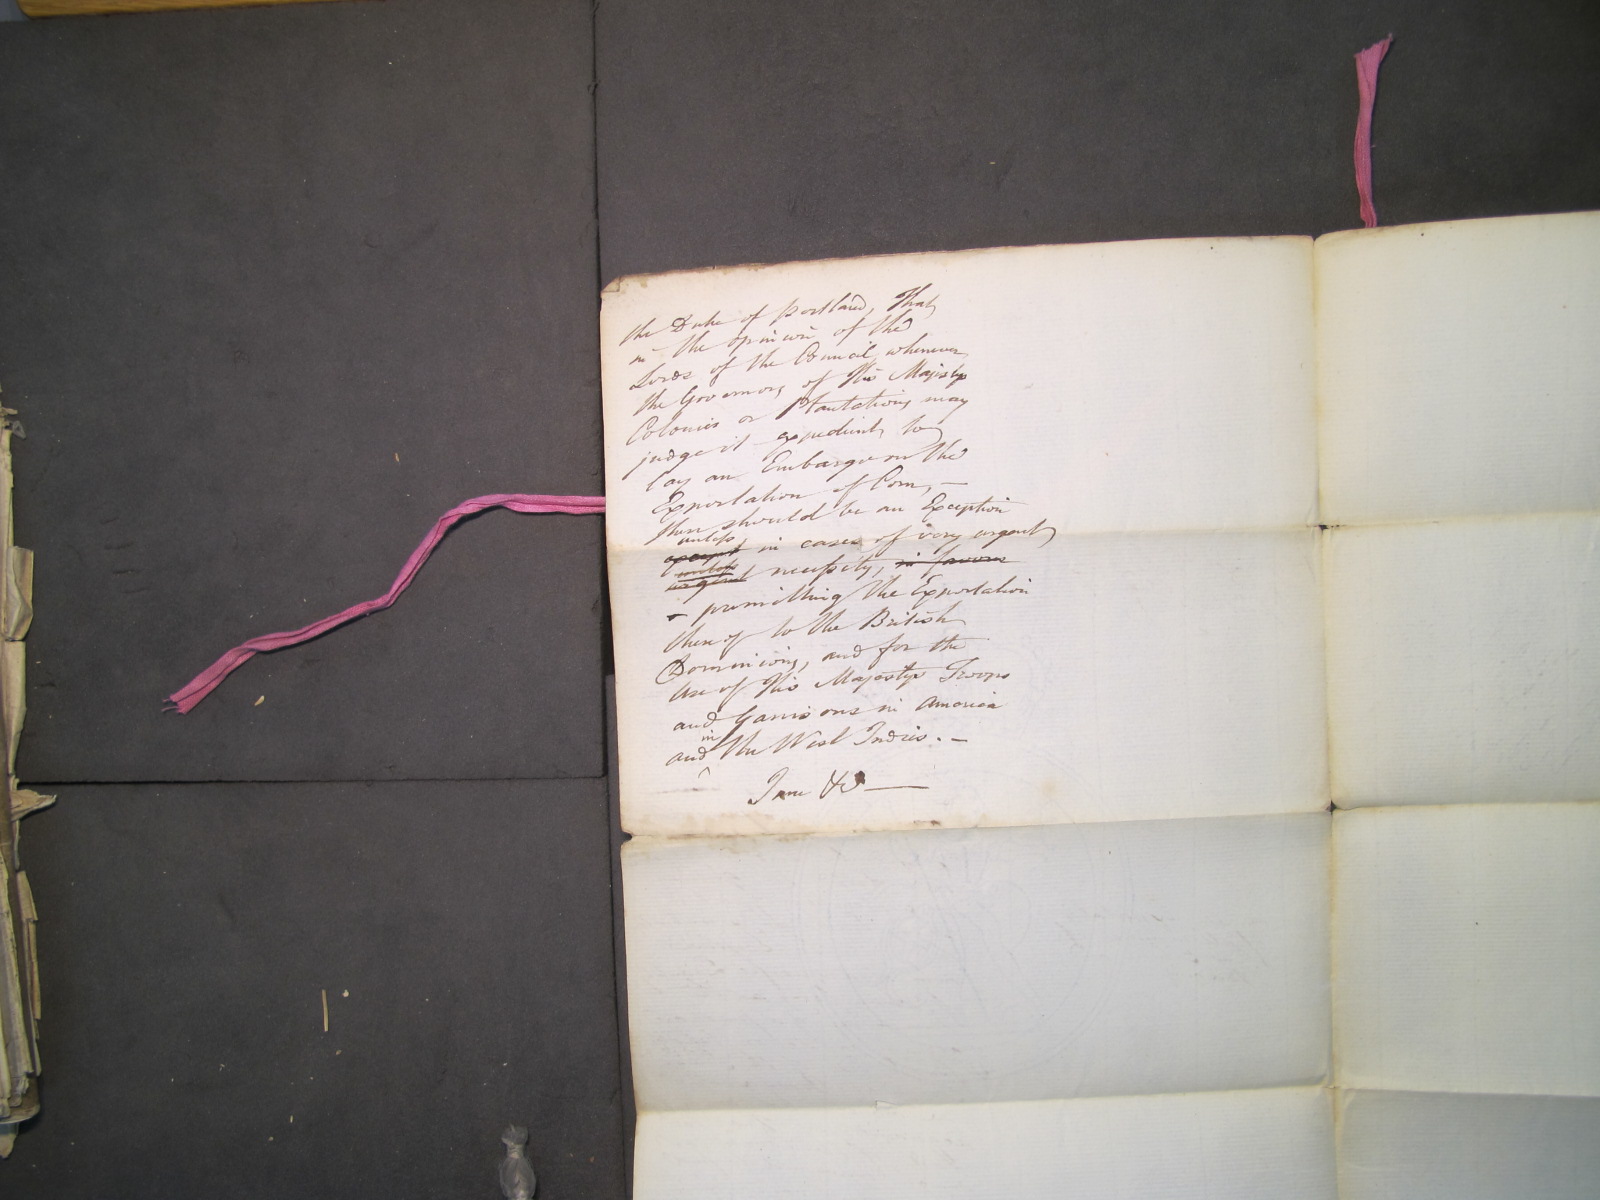 the Duke of Portland, That
in the opinion of the
Lords of the Council, whenever
the Governors of His Majestys
Colonies or Plantations may
judge it expedient to
lay an Embargo on the
Exportation of Corn, —
there should be an Exception
unless,
except in cases of very urgent
unless
urgent necessity, in favour
– permitting the Exportation
thereof to the British
Dominions, and for the
use of His Majestys Troops
and Garrisons in America
in
and the West Indies. —
I am &c —